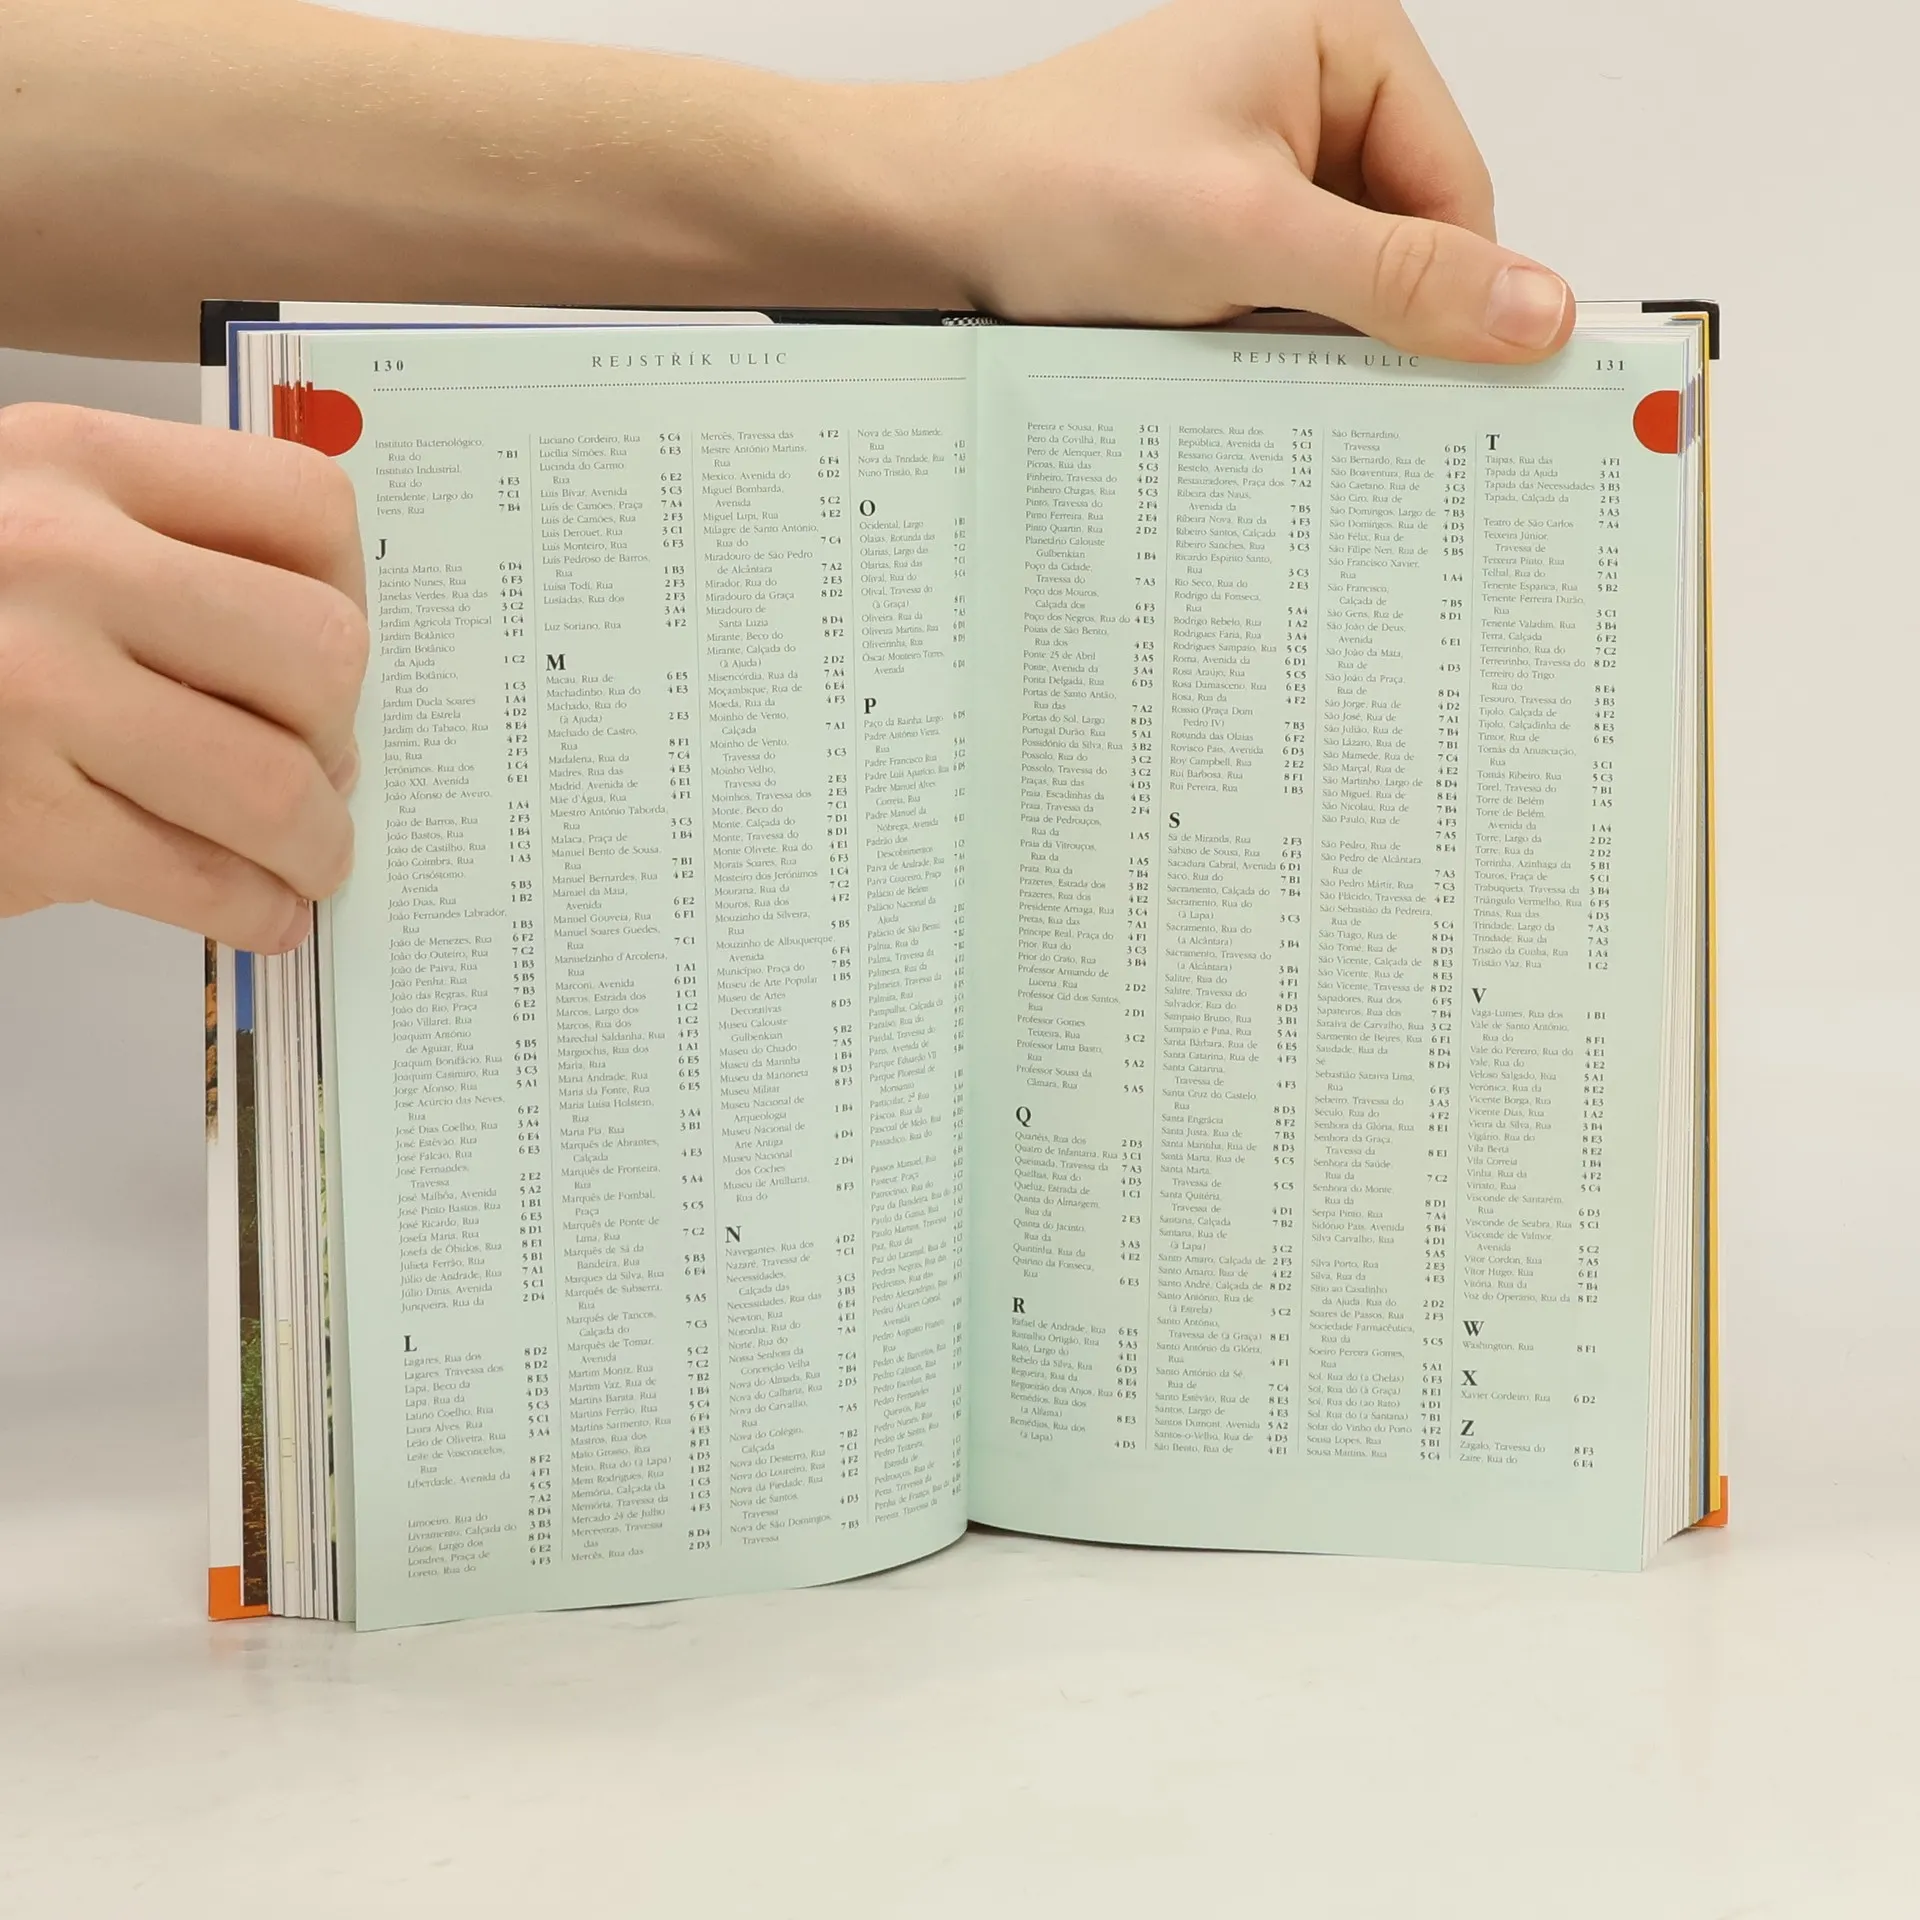 130
REJSTŘÍK ULIC
Instituto Bacteriológico,
Rua do 7 B1
Instituto Industrial,
Rua do 4 E3
Intendente, Largo do 7 C1
Ivens, Rua 7 B4
J
Jacinta Marto, Rua 6 D4
Jacinto Nunes, Rua 6 F3
Janelas Verdes, Rua das 4 D4
Jardim, Travessa do 3 C2
Jardim Agrícola Tropical 1 C4
Jardim Botânico 4 F1
Jardim Botânico
da Ajuda 1 C2
Jardim Botânico,
Rua do 1 C3
Jardim Ducla Soares 1 A4
Jardim da Estrela 4 D2
Jardim do Tabaco, Rua 8 E4
Jasmim, Rua do 4 F2
Jau, Rua 2 F3
Jerónimos, Rua dos 1 C4
João XXI, Avenida 6 E1
João Afonso de Aveiro,
Rua 1 A4
João de Barros, Rua 2 F3
João Bastos, Rua 1 B4
João de Castilho, Rua 1 C3
João Coimbra, Rua 1 A3
João Crisóstomo,
Avenida 5 B3
João Dias, Rua 1 B2
João Fernandes Labrador,
Rua 1 B3
João de Menezes, Rua 6 F2
João do Outeiro, Rua 7 C2
João de Paiva, Rua 1 B3
João Penha, Rua 5 B5
João das Regras, Rua 7 B3
João do Rio, Praça 6 E2
João Villaret, Rua 6 D1
Joaquim António
de Aguiar, Rua 5 B5
Joaquim Bonifácio, Rua 6 D4
Joaquim Casimiro, Rua 3 C3
Jorge Afonso, Rua 5 A1
José Acúrcio das Neves,
Rua 6 F2
José Dias Coelho, Rua 3 A4
José Estêvão, Rua 6 E4
José Falcão, Rua 6 E3
José Fernandes,
Travessa 2 E2
José Malhôa, Avenida 5 A2
José Pinto Bastos, Rua 1 B1
José Ricardo, Rua 6 E3
Josefa Maria, Rua 8 D1
Josefa de Óbidos, Rua 8 E1
Julieta Ferrão, Rua 5 B1
Júlio de Andrade, Rua 7 A1
Júlio Dinis, Avenida 5 C1
Junqueira, Rua da 2 D4
L
Lagares, Rua dos 8 D2
Lagares, Travessa dos 8 D2
Lapa, Beco da 8 E3
Lapa, Rua da 4 D3
Latino Coelho, Rua 5 C3
Laura Alves, Rua 5 C1
Leão de Oliveira, Rua 3 A4
Leite de Vasconcelos,
Rua 8 F2
Liberdade, Avenida da 4 F1
5 C5
7 A2
Limoeiro, Rua do 8 D4
Livramento, Calçada do 3 B3
Lóios, Largo dos 8 D4
Londres, Praça de 6 E2
Loreto, Rua do 4 F3
Luciano Cordeiro, Rua 5 C4
Lucília Simões, Rua 6 E3
Lucinda do Carmo,
Rua 6 E2
Luís Bívar, Avenida 5 C3
Luís de Camões, Praça 7 A4
Luís de Camões, Rua 2 F3
Luís Derouet, Rua 3 C1
Luís Monteiro, Rua 6 F3
Luís Pedroso de Barros,
Rua 1 B3
Luisa Todi, Rua 2 F3
Lusíadas, Rua dos 2 F3
3 A4
Luz Soriano, Rua 4 F2
M
Macau, Rua de 6 E5
Machadinho, Rua do 4 E3
Machado, Rua do
(à Ajuda) 2 E3
Machado de Castro,
Rua 8 F1
Madalena, Rua da 7 C4
Madres, Rua das 4 E3
Madrid, Avenida de 6 E1
Mãe d'Água, Rua 4 F1
Maestro António Taborda,
Rua 3 C3
Malaca, Praça de 1 B4
Manuel Bento de Sousa,
Rua 7 B1
Manuel Bernardes, Rua 4 E2
Manuel da Maia,
Avenida 6 E2
Manuel Gouveia, Rua 6 F1
Manuel Soares Guedes,
Rua 7 C1
Manuelzinho d'Arcolena,
Rua 1 A1
Marconi, Avenida 6 D1
Marcos, Estrada dos 1 C1
Marcos, Largo dos 1 C2
Marcos, Rua dos 1 C2
Marechal Saldanha, Rua 4 F3
Margiochis, Rua dos 1 A1
Maria, Rua 6 E5
Maria Andrade, Rua 6 E5
Maria da Fonte, Rua 6 E5
Maria Luísa Holstein,
Rua 3 A4
Maria Pia, Rua 3 B1
Marquês de Abrantes,
Calçada 4 E3
Marquês de Fronteira,
Rua 5 A4
Marquês de Pombal,
Praça 5 C5
Marquês de Ponte de
Lima, Rua 7 C2
Marquês de Sá da
Bandeira, Rua 5 B3
Marques da Silva, Rua 6 E4
Marquês de Subserra,
Rua 5 A5
Marquês de Tancos,
Calçada do 7 C3
Marquês de Tomar,
Avenida 5 C2
Martim Moniz, Rua 7 C2
Martim Vaz, Rua de 7 B2
Martins Barata, Rua 1 B4
Martins Ferrão, Rua 5 C4
Martins Sarmento, Rua 6 F4
Mastros, Rua dos 4 E3
Mato Grosso, Rua 8 F1
Meio, Rua do (à Lapa) 4 D3
Mem Rodrigues, Rua 1 B2
Memória, Calçada da 1 C3
Memória, Travessa da 1 C3
Mercado 24 de Julho 4 F3
Merceeiras, Travessa
das 8 D4
Mercês, Rua das 2 D3
Mercês, Travessa das 4 F2
Mestre António Martins,
Rua 6 F4
Mexico, Avenida do 6 D2
Miguel Bombarda,
Avenida 5 C2
Miguel Lupi, Rua 4 E2
Milagre de Santo António,
Rua do 7 C4
Miradouro de São Pedro
de Alcântara 7 A2
Mirador, Rua do 2 E3
Miradouro da Graça 8 D2
Miradouro de
Santa Luzia 8 D4
Mirante, Beco do 8 F2
Mirante, Calçada do
(à Ajuda) 2 D2
Misericórdia, Rua da 7 A4
Moçambique, Rua de 6 E4
Moeda, Rua da 4 F3
Moinho de Vento,
Calçada 7 A1
Moinho de Vento,
Travessa do 3 C3
Moinho Velho,
Travessa do 2 E3
Moinhos, Travessa dos 2 E3
Monte, Beco do 7 C1
Monte, Calçada do 7 D1
Monte, Travessa do 8 D1
Monte Olivete, Rua do 4 E1
Morais Soares, Rua 6 F3
Mosteiro dos Jerónimos 1 C4
Mouraria, Rua da 7 C2
Mouros, Rua dos 4 F2
Mouzinho da Silveira,
Rua 5 B5
Mouzinho de Albuquerque,
Avenida 6 F4
Município, Praça do 7 B5
Museu de Arte Popular 1 B5
Museu de Artes
Decorativas 8 D3
Museu Calouste
Gulbenkian 5 B2
Museu do Chiado 7 A5
Museu da Marinha 1 B4
Museu da Marioneta 8 D3
Museu Militar 8 F3
Museu Nacional de
Arqueologia 1 B4
Museu Nacional de
Arte Antiga 4 D4
Museu Nacional
dos Coches 2 D4
Museu de Artilharia,
Rua do 8 F3
N
Navegantes, Rua dos 4 D2
Nazaré, Travessa de 7 C1
Necessidades,
Calçada das 3 C3
Necessidades, Rua das 3 B3
Newton, Rua 6 E4
Noronha, Rua do 4 E1
Norte, Rua do 7 A4
Nossa Senhora da
Conceição Velha 7 C4
Nova do Almada, Rua 7 B4
Nova do Calhariz, Rua 2 D3
Nova do Carvalho,
Rua 7 A5
Nova do Colégio,
Calçada 7 B2
Nova do Desterro, Rua 7 C1
Nova do Loureiro, Rua 4 F2
Nova da Piedade, Rua 4 E2
Nova de Santos,
Travessa 4 D3
Nova de São Domingos,
Travessa 7 B3
Nova de São Mamede,
Rua
Nova da Trindade, Rua
Nuno Tristão, Rua
O
Ocidental, Largo
Olaias, Rotunda das
Olarias, Largo das
Olarias, Rua das
Olival, Rua do
Olival, Travessa do
(à Graça)
Oliveira, Rua da
Oliveira Martins, Rua
Oliveirinha, Rua
Óscar Monteiro Torres,
Avenida
P
Paço da Rainha, Largo
Padre António Vieira,
Rua
Padre Francisco Rua
Padre Luís Aparício, Rua
Padre Manuel Alves
Correia, Rua
Padre Manuel da
Nóbrega, Avenida
Padrão dos
Descobrimentos
Paiva de Andrade, Rua
Paiva Couceiro, Praça
Palácio de Belém
Palácio Nacional da
Ajuda
Palácio de São Bento
Palma, Rua da
Palma, Travessa da
Palmeira, Rua da
Palmeira, Travessa da
Palmira, Rua
Pampulha, Calçada da
Paraíso, Rua do
Pardal, Travessa do
Paris, Avenida de
Parque Eduardo VII
Parque Florestal de
Monsanto
Particular, 2ª Rua
Páscoa, Rua da
Pascoal de Melo, Rua
Passadiço, Rua do
Passos Manuel, Rua
Pasteur, Praça
Patrocínio, Rua do
Pau da Bandeira, Rua do
Paulo da Gama, Rua
Paulo Martins, Travessa
Paz, Rua da
Paz do Laranjal, Rua da
Pedras Negras, Rua das
Pedreiras, Rua das
Pedro Alexandrino, Rua
Pedro Álvares Cabral,
Avenida
Pedro Augusto Franco,
Rua
Pedro de Barcelos, Rua
Pedro Calmon, Rua
Pedro Escobar, Rua
Pedro Fernandes
Queirós, Rua
Pedro Nunes, Rua
Pedro de Sintra, Rua
Pedro Teixeira,
Estrada de
Pedrouços, Rua de
Pena, Travessa da
Penha de França, Rua da
Pereira, Travessa da
REJSTŘÍK ULIC
131
Pereira e Sousa, Rua 3 C1
Pero da Covilhã, Rua 1 B3
Pero de Alenquer, Rua 1 A3
Picoas, Rua das 5 C3
Pinheiro, Travessa do 4 D2
Pinheiro Chagas, Rua 5 C3
Pinto, Travessa do 2 F4
Pinto Ferreira, Rua 2 E4
Pinto Quartin, Rua 2 D2
Planetário Calouste
Gulbenkian 1 B4
Poço da Cidade,
Travessa do 7 A3
Poço dos Mouros,
Calçada dos 6 F3
Poço dos Negros, Rua do 4 E3
Poiais de São Bento,
Rua dos 4 E3
Ponte 25 de Abril 3 A5
Ponte, Avenida da 3 A4
Ponta Delgada, Rua 6 D3
Portas de Santo Antão,
Rua das 7 A2
Portas do Sol, Largo 8 D3
Portugal Durão, Rua 5 A1
Possidónio da Silva, Rua 3 B2
Possolo, Rua do 3 C2
Possolo, Travessa do 3 C2
Praças, Rua das 4 D3
Praia, Escadinhas da 4 E3
Praia, Travessa da 2 F4
Praia de Pedrouços,
Rua da 1 A5
Praia da Vitrouços,
Rua da 1 A5
Prata, Rua da 7 B4
Prazeres, Estrada dos 3 B2
Prazeres, Rua dos 4 E2
Presidente Arriaga, Rua 3 C4
Pretas, Rua das 7 A1
Príncipe Real, Praça do 4 F1
Prior, Rua do 3 C3
Prior do Crato, Rua 3 B4
Professor Armando de
Lucena, Rua 2 D2
Professor Cid dos Santos,
Rua 2 D1
Professor Gomes
Teixeira, Rua 3 C2
Professor Lima Basto,
Rua 5 A2
Professor Sousa da
Câmara, Rua 5 A5
Q
Quartéis, Rua dos 2 D3
Quatro de Infantaria, Rua 3 C1
Queimada, Travessa da 7 A3
Quelhas, Rua do 4 D3
Queluz, Estrada de 1 C1
Quinta do Almargem,
Rua da 2 E3
Quinta do Jacinto,
Rua da 3 A3
Quintinha, Rua da 4 E2
Quirino da Fonseca,
Rua 6 E3
R
Rafael de Andrade, Rua 6 E5
Ramalho Ortigão, Rua 5 A3
Rato, Largo do 4 E1
Rebelo da Silva, Rua 6 D3
Regueira, Rua da 8 E4
Regueirão dos Anjos, Rua 6 E5
Remédios, Rua dos
(a Alfama) 8 E3
Remédios, Rua dos
(à Lapa) 4 D3
Remolares, Rua dos 7 A5
República, Avenida da 5 C1
Ressano Garcia, Avenida 5 A3
Restelo, Avenida do 1 A4
Restauradores, Praça dos 7 A2
Ribeira das Naus,
Avenida da 7 B5
Ribeira Nova, Rua da 4 F3
Ribeiro Santos, Calçada 4 D3
Ribeiro Sanches, Rua 3 C3
Ricardo Espírito Santo,
Rua 3 C3
Rio Seco, Rua do 2 E3
Rodrigo da Fonseca,
Rua 5 A4
Rodrigo Rebelo, Rua 1 A2
Rodrigues Faria, Rua 3 A4
Rodrigues Sampaio, Rua 5 C5
Roma, Avenida da 6 D1
Rosa Araújo, Rua 5 C5
Rosa Damasceno, Rua 6 E3
Rosa, Rua da 4 F2
Rossio (Praça Dom
Pedro IV) 7 B3
Rotunda das Olaias 6 F2
Rovisco Pais, Avenida 6 D3
Roy Campbell, Rua 2 E2
Rui Barbosa, Rua 8 F1
Rui Pereira, Rua 1 B3
S
Sá de Miranda, Rua 2 F3
Sabino de Sousa, Rua 6 F3
Sacadura Cabral, Avenida 6 D1
Saco, Rua do 7 B1
Sacramento, Calçada do 7 B4
Sacramento, Rua do
(à Lapa) 3 C3
Sacramento, Rua do
(a Alcântara) 3 B4
Sacramento, Travessa do
(a Alcântara) 3 B4
Salitre, Rua do 4 F1
Salitre, Travessa do 4 F1
Salvador, Rua do 8 D3
Sampaio Bruno, Rua 3 B1
Sampaio e Pina, Rua 5 A4
Santa Bárbara, Rua de 6 E5
Santa Catarina, Rua de 4 F3
Santa Catarina,
Travessa de 4 F3
Santa Cruz do Castelo,
Rua 8 D3
Santa Engrácia 8 F2
Santa Justa, Rua de 7 B3
Santa Marinha, Rua de 8 D3
Santa Marta, Rua de 5 C5
Santa Marta,
Travessa de 5 C5
Santa Quitéria,
Travessa de 4 D1
Santana, Calçada 7 B2
Santana, Rua de
(à Lapa) 3 C2
Santo Amaro, Calçada de 2 F3
Santo Amaro, Rua de 4 E2
Santo André, Calçada de 8 D2
Santo António, Rua de
(à Estrela) 3 C2
Santo António,
Travessa de (à Graça) 8 E1
Santo António da Glória,
Rua 4 F1
Santo António da Sé,
Rua de 7 C4
Santo Estevão, Rua de 8 E3
Santos, Largo de 4 E3
Santos Dumont, Avenida 5 A2
Santos-o-Velho, Rua de 4 D3
São Bento, Rua de 4 E1
São Bernardino,
Travessa 6 D5
São Bernardo, Rua de 4 D2
São Boaventura, Rua de 4 F2
São Caetano, Rua de 3 C3
São Ciro, Rua de 4 D2
São Domingos, Largo de 7 B3
São Domingos, Rua de 4 D3
São Félix, Rua de 4 D3
São Filipe Neri, Rua de 5 B5
São Francisco Xavier,
Rua 1 A4
São Francisco,
Calçada de 7 B5
São Gens, Rua de 8 D1
São João de Deus,
Avenida 6 E1
São João da Mata,
Rua de 4 D3
São João da Praça,
Rua de 8 D4
São Jorge, Rua de 4 D2
São José, Rua de 7 A1
São Julião, Rua de 7 B4
São Lázaro, Rua de 7 B1
São Mamede, Rua de 7 C4
São Marçal, Rua de 4 E2
São Martinho, Largo de 8 D4
São Miguel, Rua de 8 E4
São Nicolau, Rua de 7 B4
São Paulo, Rua de 4 F3
7 A5
São Pedro, Rua de 8 E4
São Pedro de Alcântara,
Rua de 7 A3
São Pedro Mártir, Rua 7 C3
São Plácido, Travessa de 4 E2
São Sebastião da Pedreira,
Rua de 5 C4
São Tiago, Rua de 8 D4
São Tomé, Rua de 8 D3
São Vicente, Calçada de 8 E3
São Vicente, Rua de 8 E3
São Vicente, Travessa de 8 D2
Sapadores, Rua dos 6 F5
Sapateiros, Rua dos 7 B4
Saraiva de Carvalho, Rua 3 C2
Sarmento de Beires, Rua 6 F1
Saudade, Rua da 8 D4
Sé 8 D4
Sebastião Saraiva Lima,
Rua 6 F3
Sebeiro, Travessa do 3 A3
Século, Rua do 4 F2
Senhora da Glória, Rua 8 E1
Senhora da Graça,
Travessa da 8 E1
Senhora da Saúde,
Rua da 7 C2
Senhora do Monte,
Rua da 8 D1
Serpa Pinto, Rua 7 A4
Sidónio Pais, Avenida 5 B4
Silva Carvalho, Rua 4 D1
5 A5
Silva Porto, Rua 2 E3
Silva, Rua da 4 E3
Sítio ao Casalinho
da Ajuda, Rua do 2 D2
Soares de Passos, Rua 2 F3
Sociedade Farmacêutica,
Rua da 5 C5
Soeiro Pereira Gomes,
Rua 5 A1
Sol, Rua do (a Chelas) 6 F3
Sol, Rua do (à Graça) 8 E1
Sol, Rua do (ao Rato) 4 D1
Sol, Rua do (a Santana) 7 B1
Solar do Vinho do Porto 4 F2
Sousa Lopes, Rua 5 B1
Sousa Martins, Rua 5 C4
T
Taipas, Rua das 4 F1
Tapada da Ajuda 3 A1
Tapada das Necessidades 3 B3
Tapada, Calçada da 2 F3
3 A3
Teatro de São Carlos 7 A4
Teixeira Júnior,
Travessa de 3 A4
Teixeira Pinto, Rua 6 F4
Telhal, Rua do 7 A1
Tenente Espanca, Rua 5 B2
Tenente Ferreira Durão,
Rua 3 C1
Tenente Valadim, Rua 3 B4
Terra, Calçada 6 F2
Terreirinho, Rua do 7 C2
Terreirinho, Travessa do 8 D2
Terreiro do Trigo
Rua do 8 E4
Tesouro, Travessa do 3 B3
Tijolo, Calçada de 4 F2
Tijolo, Calçadinha de 8 E3
Timor, Rua de 6 E5
Tomás da Anunciação,
Rua 3 C1
Tomás Ribeiro, Rua 5 C3
Torel, Travessa do 7 B1
Torre de Belém 1 A5
Torre de Belém,
Avenida da 1 A4
Torre, Largo da 2 D2
Torre, Rua da 2 D2
Torrinha, Azinhaga da 5 B1
Touros, Praça de 5 C1
Trabuqueta, Travessa da 3 B4
Triângulo Vermelho, Rua 6 F5
Trinas, Rua das 4 D3
Trindade, Largo da 7 A3
Trindade, Rua da 7 A3
Tristão da Cunha, Rua 1 A4
Tristão Vaz, Rua 1 C2
V
Vaga-Lumes, Rua dos 1 B1
Vale de Santo António,
Rua do 8 F1
Vale do Pereiro, Rua do 4 E1
Vale, Rua do 4 E2
Veloso Salgado, Rua 5 A1
Verónica, Rua da 8 E2
Vicente Borga, Rua 4 E3
Vicente Dias, Rua 1 A2
Vieira da Silva, Rua 3 B4
Vigário, Rua do 8 E3
Vila Berta 8 E2
Vila Correia 1 B4
Vinha, Rua da 4 F2
Viriato, Rua 5 C4
Visconde de Santarém,
Rua 6 D3
Visconde de Seabra, Rua 5 C1
Visconde de Valmor,
Avenida 5 C2
Vítor Cordon, Rua 7 A5
Vítor Hugo, Rua 6 E1
Vitória, Rua da 7 B4
Voz do Operário, Rua da 8 E2
W
Washington, Rua 8 F1
X
Xavier Cordeiro, Rua 6 D2
Z
Zagalo, Travessa do 8 F3
Zaire, Rua do 6 E4